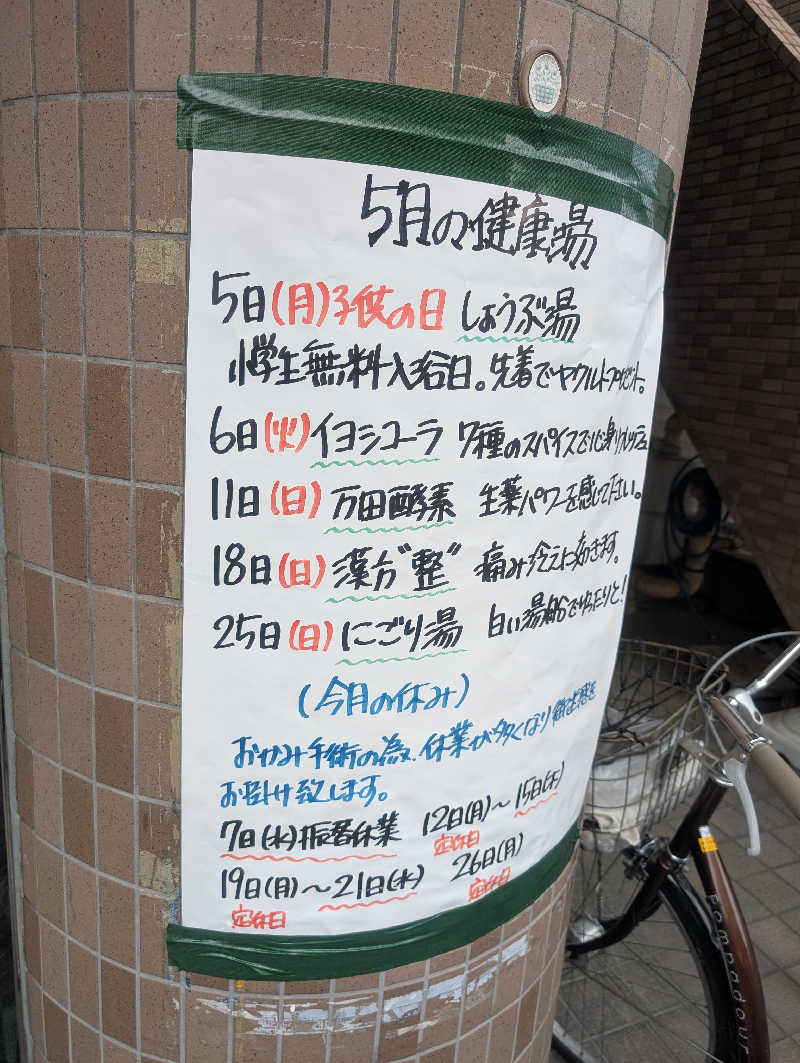 5月の健康湯
5日(月)子供の日 しょうぶ湯
小学生無料入浴日。先着でヤクルトプレゼント。
6日(火)イヨシコーラ 7種のスパイスで心身リフレッシュ
11日(日)万田酵素 生薬パワーを感じて下さい。
18日(日)漢方"整" 痛み冷えに効きます。
25日(日)にごり湯 白い湯船でゆったりと!
(今月の休み)
おかみ手術の為、休業が多くなり御迷惑を
お掛け致します。
7日(水)振替休業 12日(月)～15日(木)
定休日
19日(月)～21日(水) 26日(月)
定休日 定休日
Pompadour